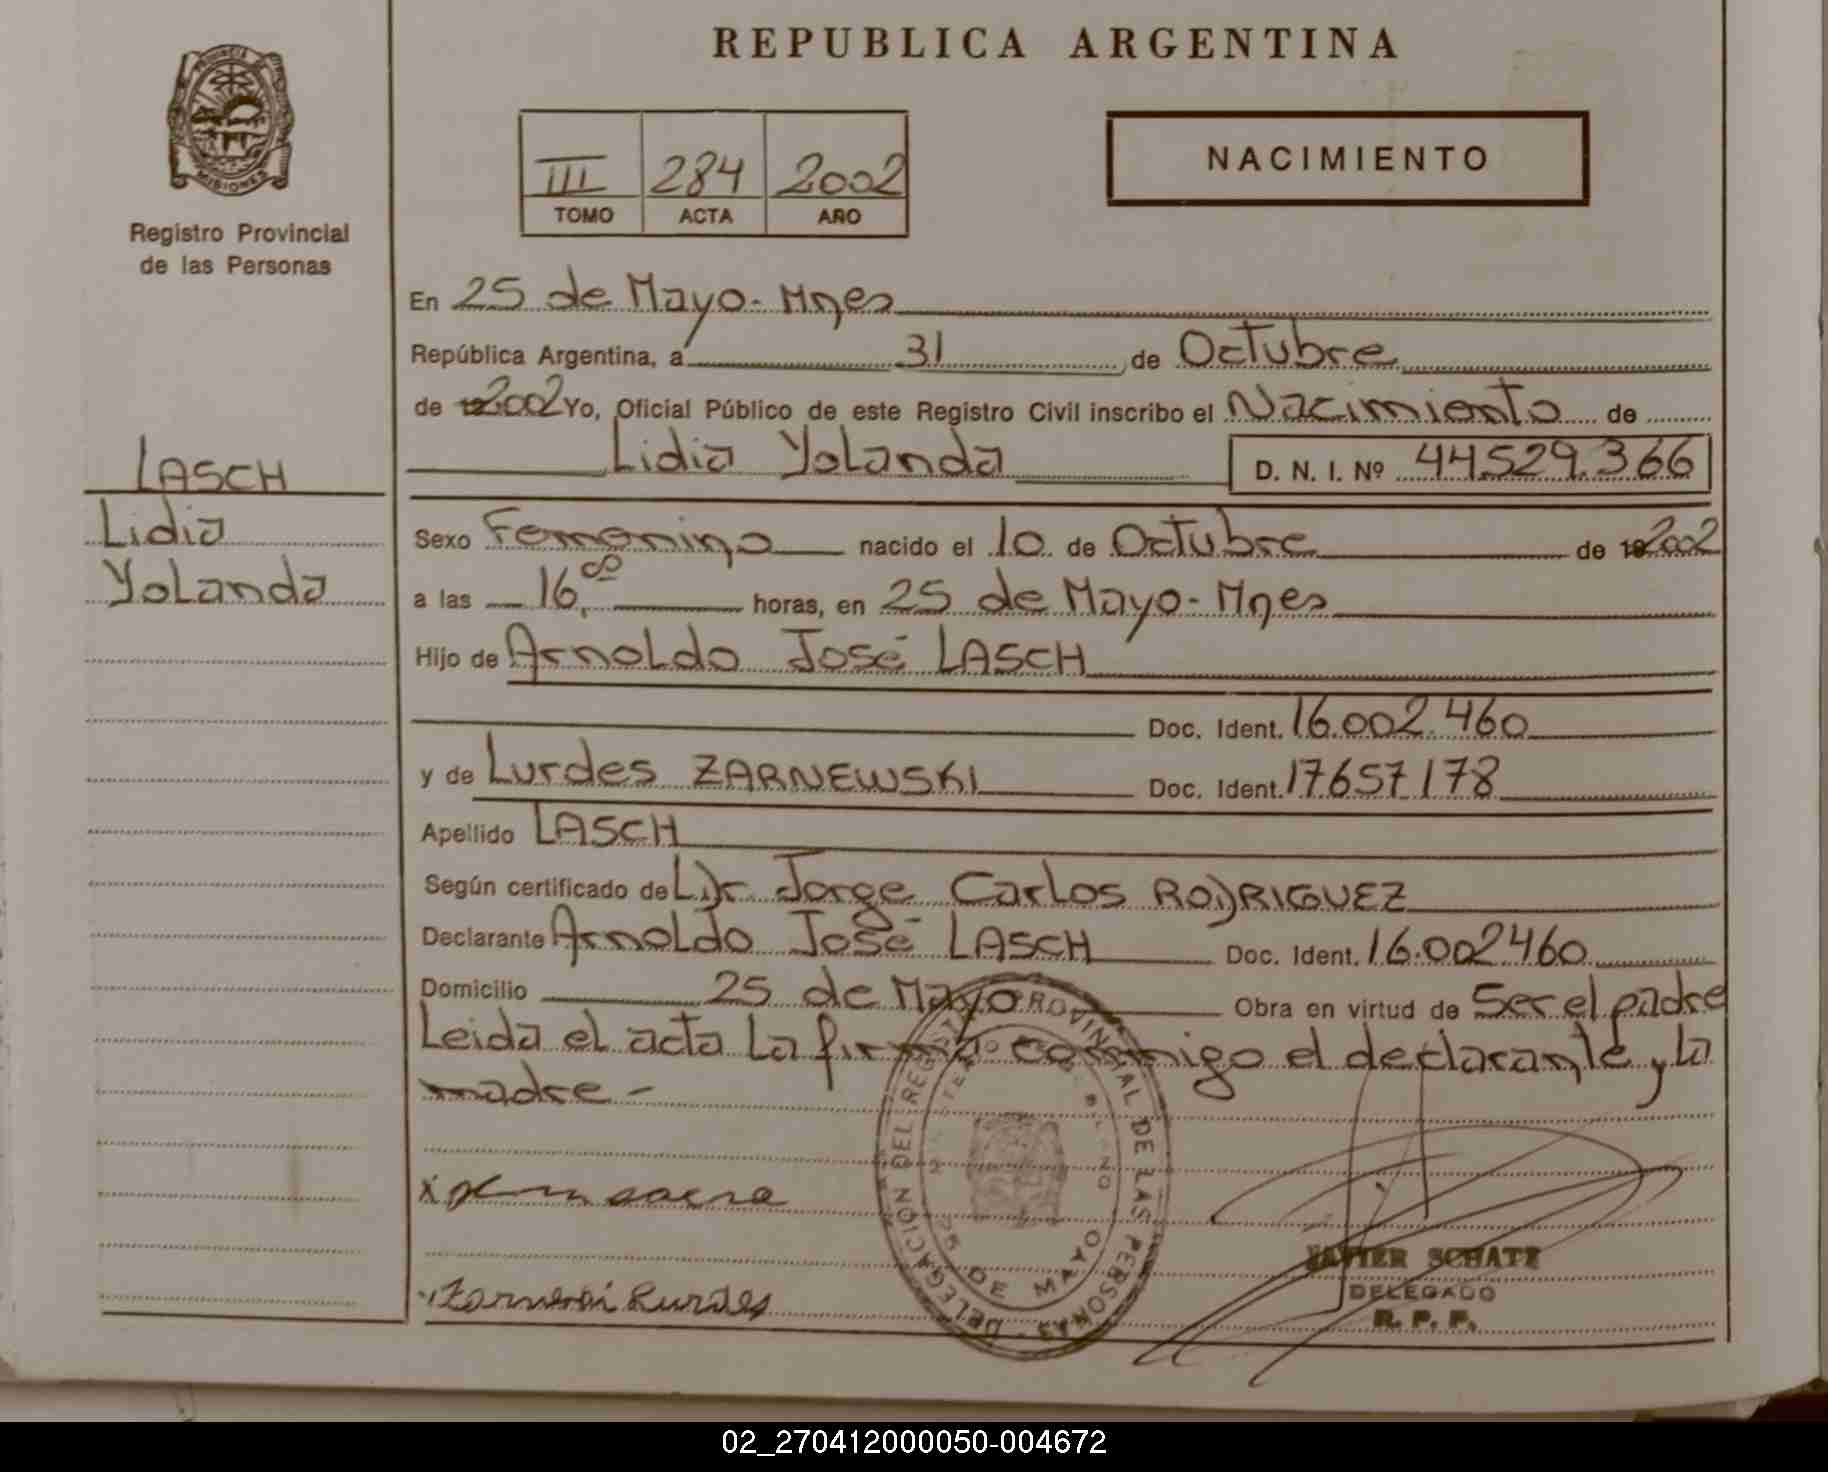 REPUBLICA ARGENTINA
PROVINCIA
MISIONES
Registro Provincial
de las Personas
III 284 2002
TOMO ACTA AÑO
NACIMIENTO
En 25 de Mayo - Mnes
República Argentina, a 31 de Octubre
de 2002 Yo, Oficial Público de este Registro Civil inscribo el Nacimiento de
Lidia Yolanda D. N. I. Nº 44.529.366
LASCH
Lidia
Yolanda
Sexo Femenino nacido el 10 de Octubre de 2002
a las 16,00 horas, en 25 de Mayo - Mnes
Hijo de Arnoldo José LASCH
Doc. Ident. 16.002.460
y de Lurdes ZARNEWSKI Doc. Ident. 17657178
Apellido LASCH
Según certificado de Dr. Jorge Carlos RODRIGUEZ
Declarante Arnoldo José LASCH Doc. Ident. 16.002460
Domicilio 25 de Mayo Obra en virtud de Ser el padre
Leida el acta la firma conmigo el declarante y la
madre -
DELEGACIÓN DEL REGISTRO PROVINCIAL DE LAS PERSONAS
25 DE MAYO
Lurdes
JAVIER SCHATZ
DELEGADO
R. P. P.
02_270412000050-004672